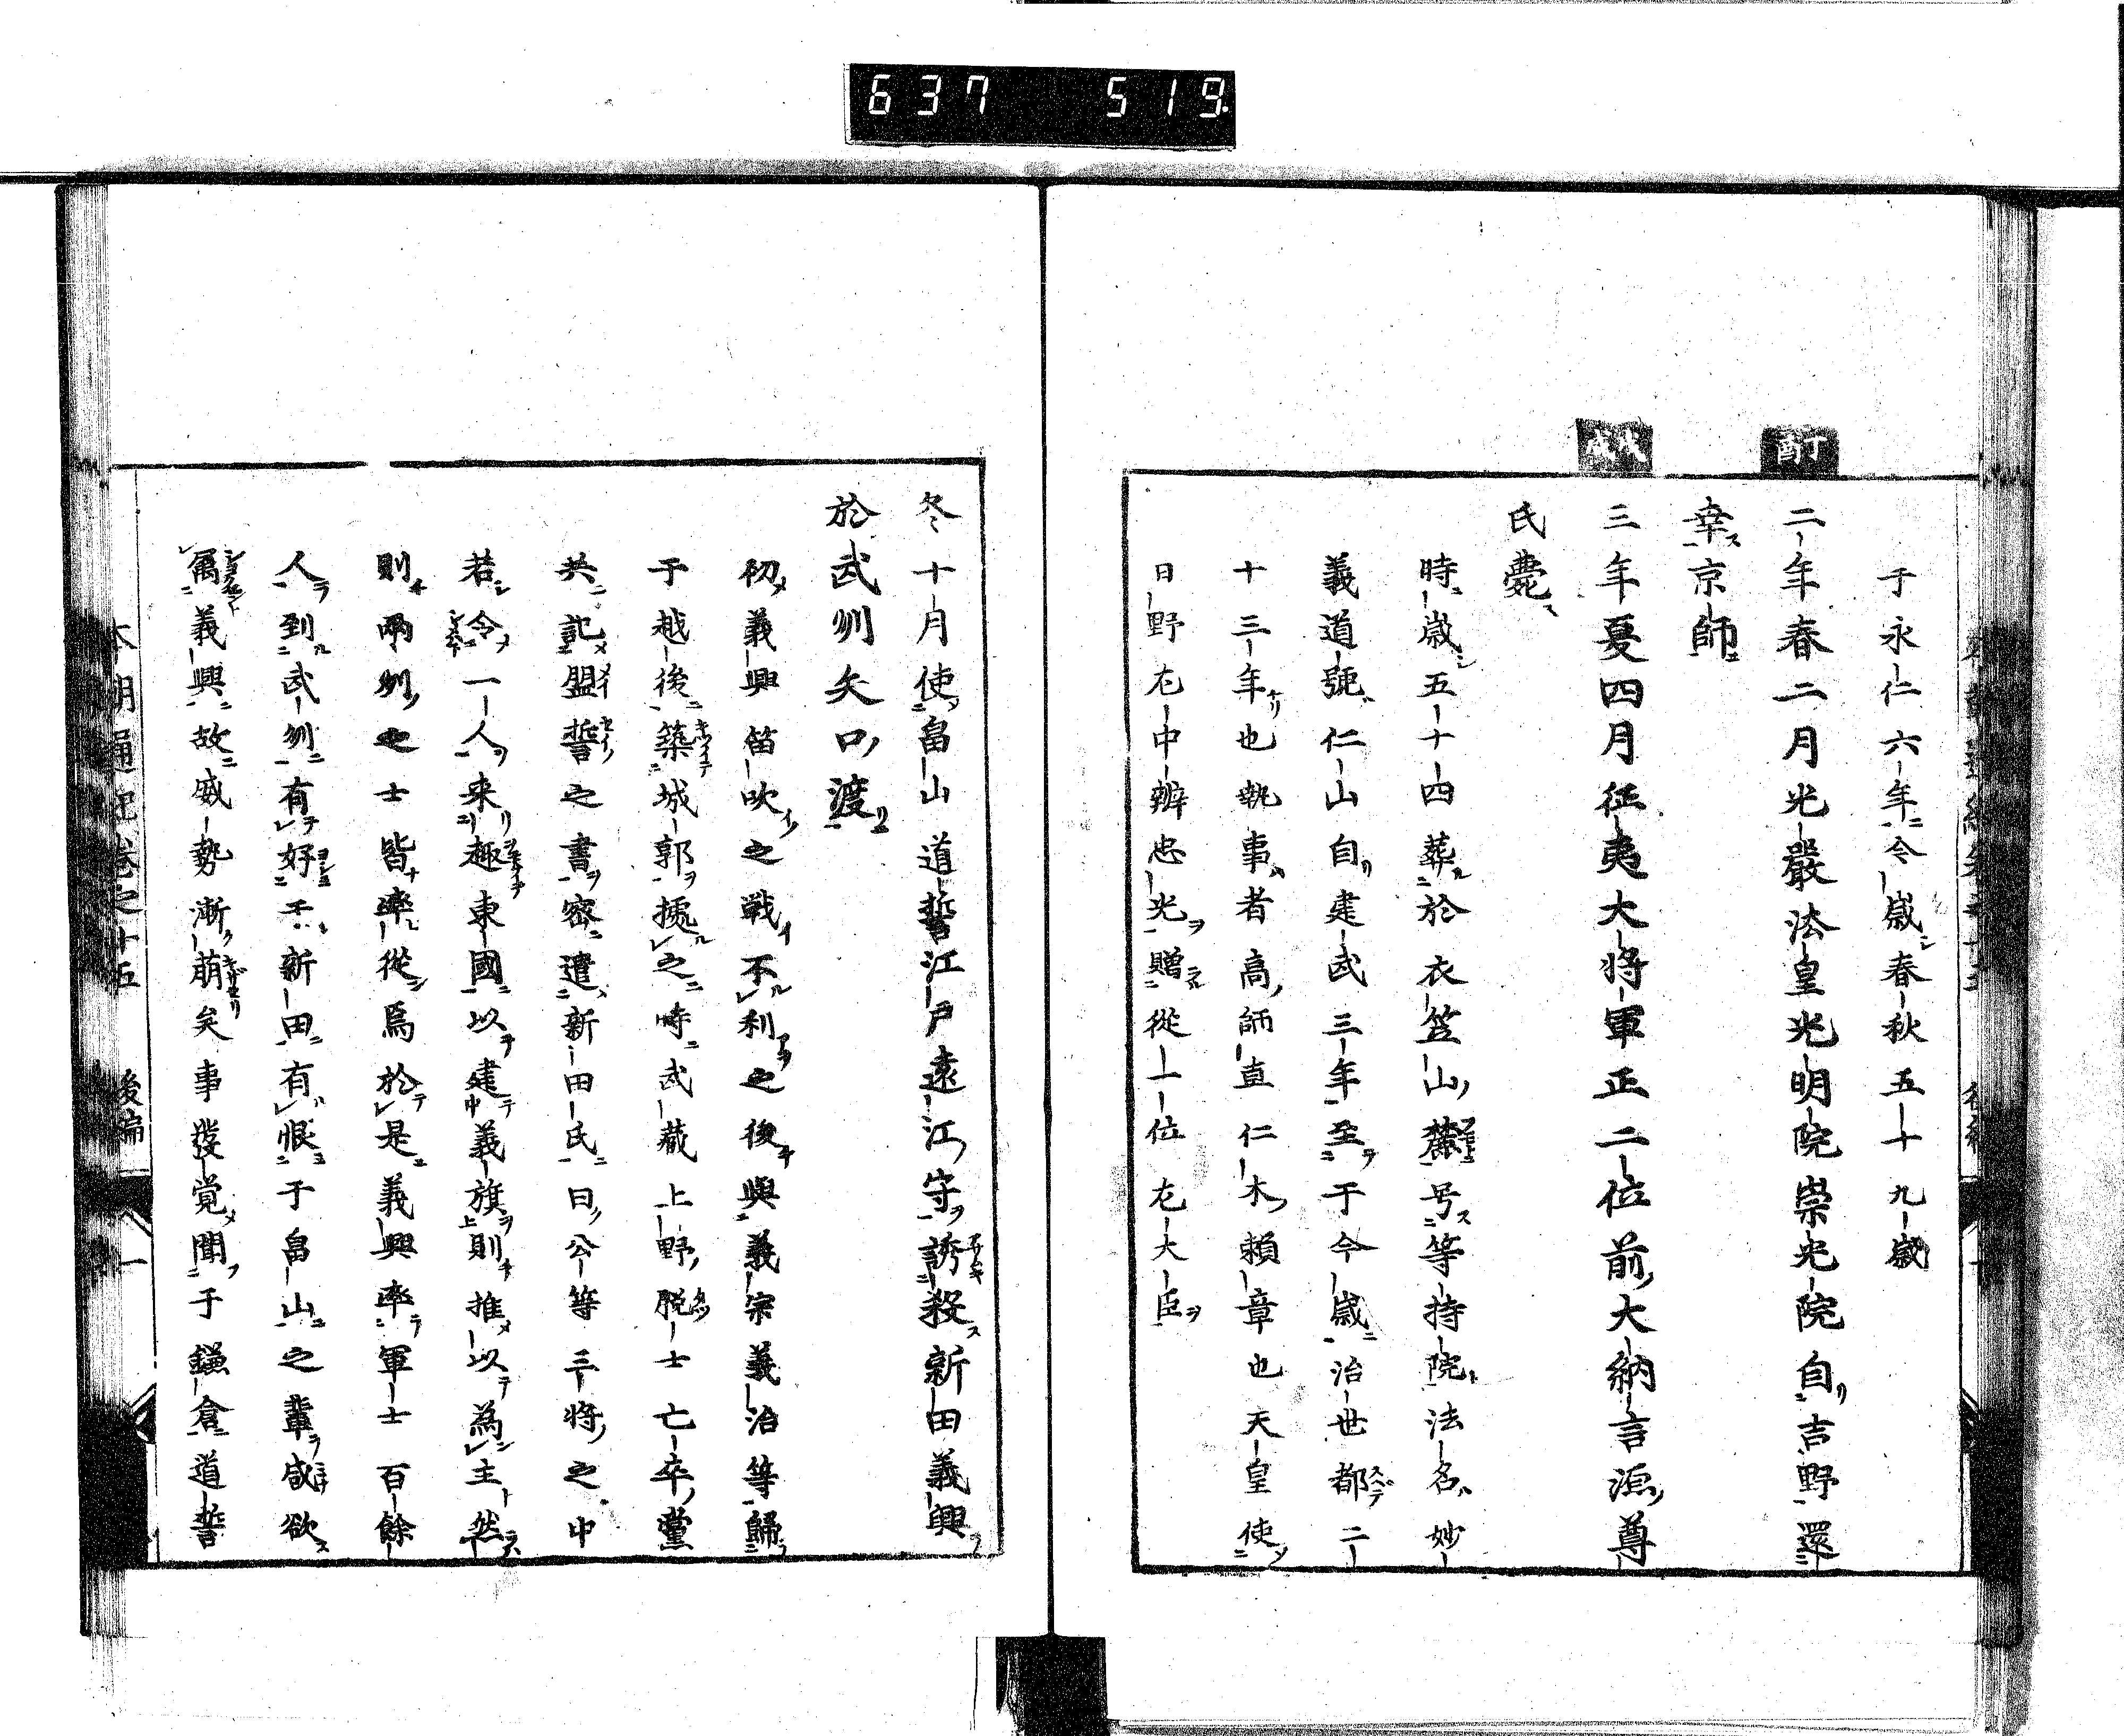 637 519
于永仁六年今歳春秋五十九歳
丁酉
二年春二月光嚴法皇光明院崇光院自吉野還
幸京師
戊戌
三年夏四月征夷大将軍正二位前大納言源尊
氏薨
時歳五十四葬於衣笠山麓号等持院法名妙
義道號仁山自建武三年至于今歳治世都二
十三年也執事者高師直仁木頼章也天皇使
日野左中辨忠光贈從一位左大臣
冬十月使畠山道誓江戸遠江守誘殺新田義興
於武州矢口渡
初義興笛吹之戦不利之後與義宗義治等歸
于越後築城郭據之時武藏上野脱士亡卒黨
共記盟誓之書密遣新田氏曰公等三将之中
若令一人来趣東國以建義旗則推以為主然
則兩州之士皆率從焉於是義興率軍士百餘
人到武州有好于新田有恨于畠山之輩咸欲
属義興故威勢漸萌矣事發覚聞于鎌倉道誓
本朝通紀巻之十五 後編 一